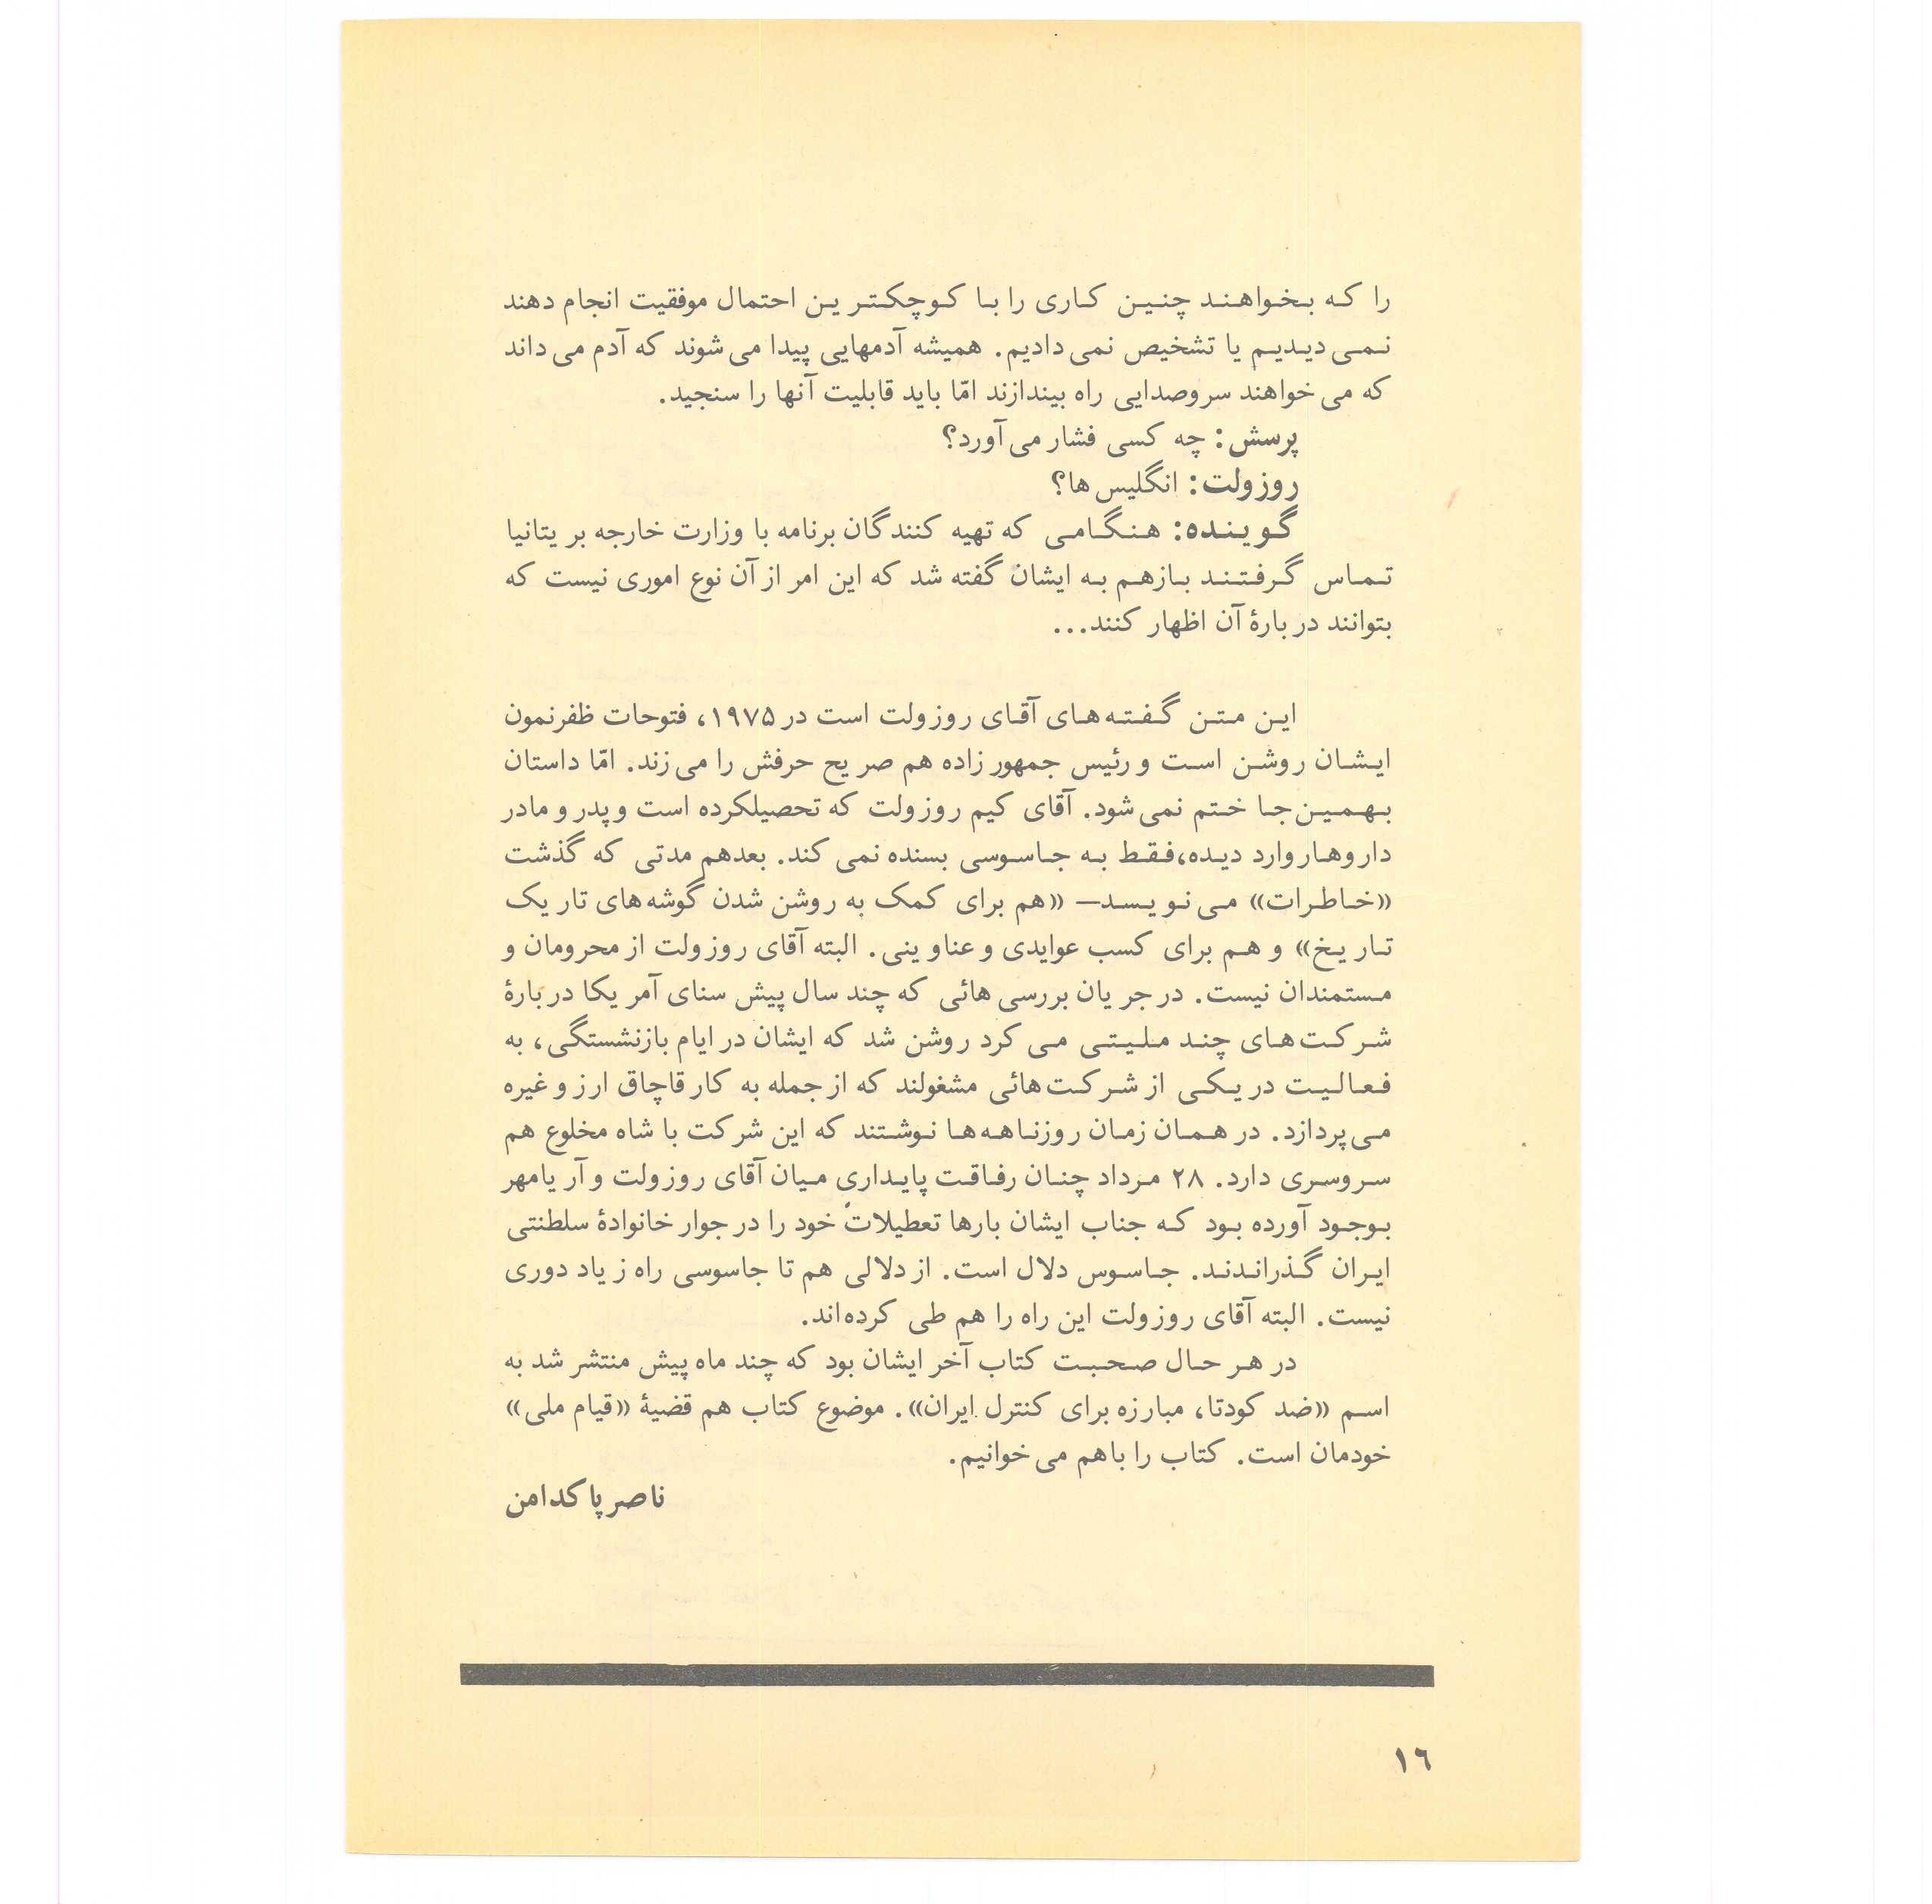 را که بخواهند چنین کاری را با کوچکترین احتمال موفقیت انجام دهند
نمی‌دیدیم یا تشخیص نمی‌دادیم. همیشه آدمهایی پیدا می‌شوند که آدم می‌داند
که می‌خواهند سروصدایی راه بیندازند امّا باید قابلیت آنها را سنجید.
پرسش: چه کسی فشار می‌آورد؟
روزولت: انگلیس‌ها؟
گوینده: هنگامی که تهیه کنندگان برنامه با وزارت خارجه بریتانیا
تماس گرفتند بازهم به ایشان گفته شد که این امر از آن نوع اموری نیست که
بتوانند دربارۀ آن اظهار کنند...
این متن گفته‌های آقای روزولت است در ۱۹۷۵، فتوحات ظفرنمون
ایشان روشن است و رئیس جمهورزاده هم صریح حرفش را می‌زند. امّا داستان
بهمین‌جا ختم نمی‌شود. آقای کیم روزولت که تحصیلکرده است و پدر و مادر
دار و هاروارد دیده، فقط به جاسوسی بسنده نمی‌کند. بعدهم مدتی که گذشت
«خاطرات» می‌نویسد— «هم برای کمک به روشن شدن گوشه‌های تاریک
تاریخ» و هم برای کسب عوایدی و عناوینی. البته آقای روزولت از محرومان و
مستمندان نیست. در جریان بررسی‌هائی که چند سال پیش سنای آمریکا دربارۀ
شرکت‌های چند ملیتی می‌کرد روشن شد که ایشان در ایام بازنشستگی، به
فعالیت در یکی از شرکت‌هائی مشغولند که از جمله به کار قاچاق ارز و غیره
می‌پردازد. در همان زمان روزناهه‌ها نوشتند که این شرکت با شاه مخلوع هم
سروسری دارد. ۲۸ مرداد چنان رفاقت پایداری میان آقای روزولت و آریامهر
بوجود آورده بود که جناب ایشان بارها تعطیلات خود را در جوار خانوادۀ سلطنتی
ایران گذراندند. جاسوس دلال است. از دلالی هم تا جاسوسی راه زیاد دوری
نیست. البته آقای روزولت این راه را هم طی کرده‌اند.
در هر حال صحبت کتاب آخر ایشان بود که چند ماه پیش منتشر شد به
اسم «ضد کودتا، مبارزه برای کنترل ایران». موضوع کتاب هم قضیۀ «قیام ملی»
خودمان است. کتاب را باهم می‌خوانیم.
ناصر پاکدامن
۱۶